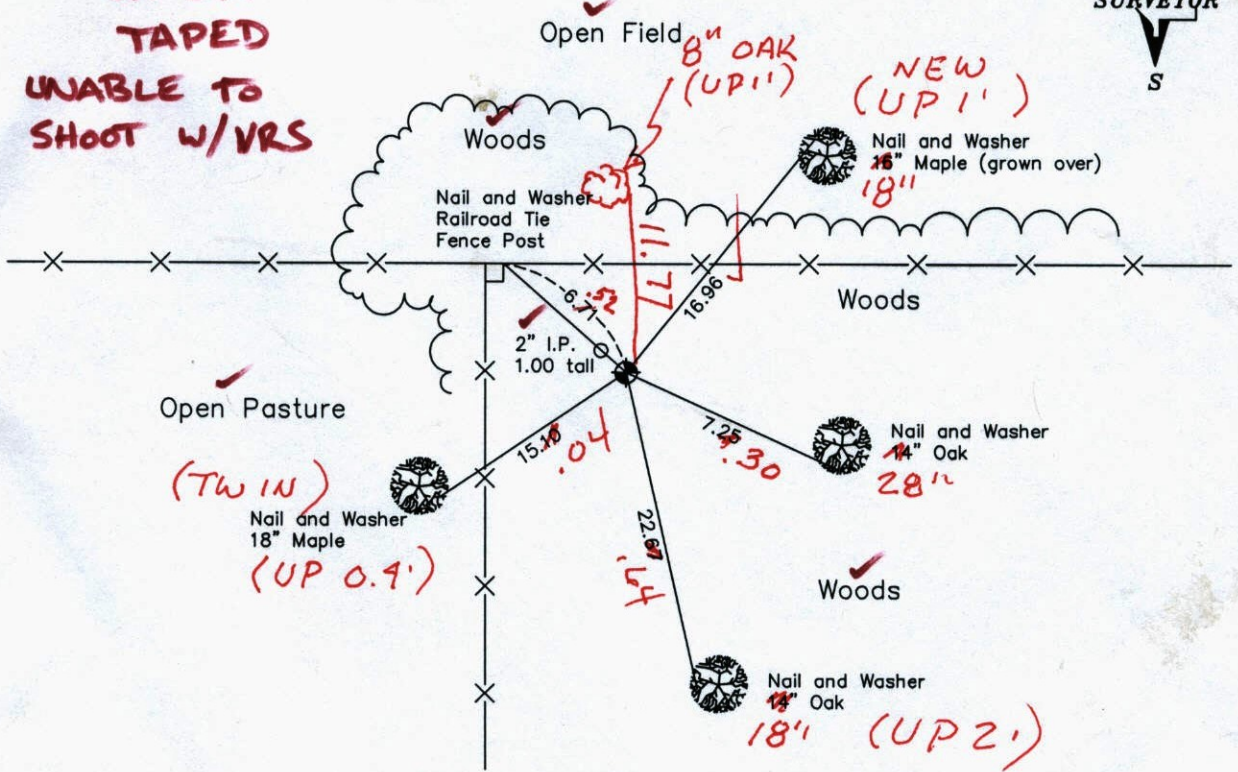 TAPED
UNABLE TO
SHOOT W/VRS
Open Field
8" OAK
(UP1')
NEW
(UP 1')
SURVEYOR
S
Woods
Nail and Washer
16" Maple (grown over)
18"
Nail and Washer
Railroad Tie
Fence Post
11.77
16.96
Woods
6.71
.52
2" I.P.
1.00 tall
Open Pasture
15.10
.04
7.25
.30
Nail and Washer
14" Oak
28"
(TWIN)
Nail and Washer
18" Maple
(UP 0.4')
22.67
.64
Woods
Nail and Washer
14" Oak
18" (UP 2')